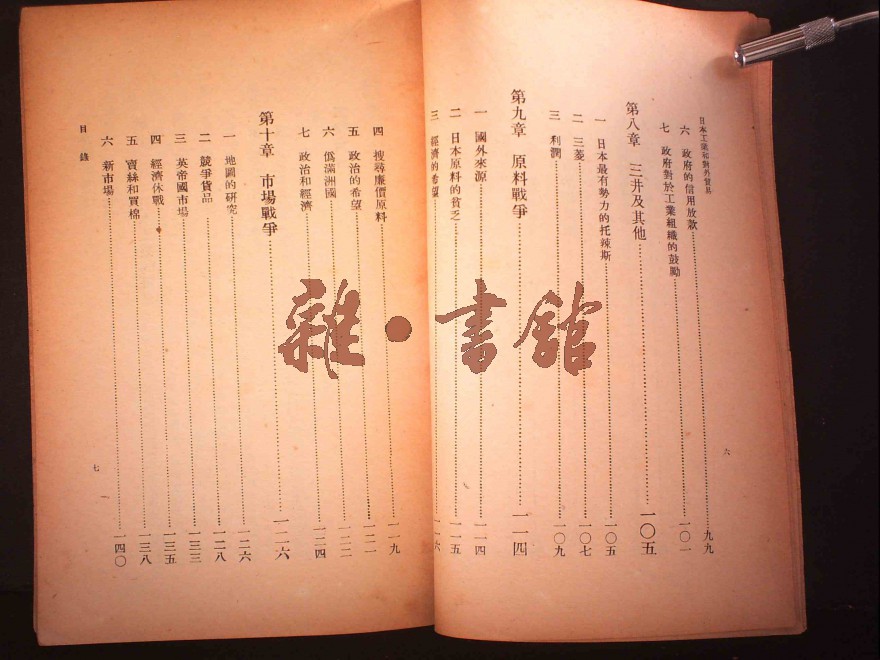 日本工業和對外貿易
六 政府的信用放款 九九
七 政府對於工業組織的鼓勵 一〇一
第八章 三井及其他 一〇五
一 日本最有勢力的托辣斯 一〇五
二 三菱 一〇七
三 利潤 一〇九
第九章 原料戰爭 一一四
一 國外來源 一一四
二 日本原料的貧乏 一一五
三 經濟的希望 一一六
六
四 搜尋廉價原料 一一九
五 政治的希望 一二一
六 僞滿洲國 一二二
七 政治和經濟 一二四
第十章 市場戰爭 一二六
一 地圖的研究 一二六
二 競爭貨品 一二八
三 英帝國市場 一三三
四 經濟休戰 一三五
五 賣絲和買棉 一三八
六 新市場 一四〇
目錄
七
雜·書館